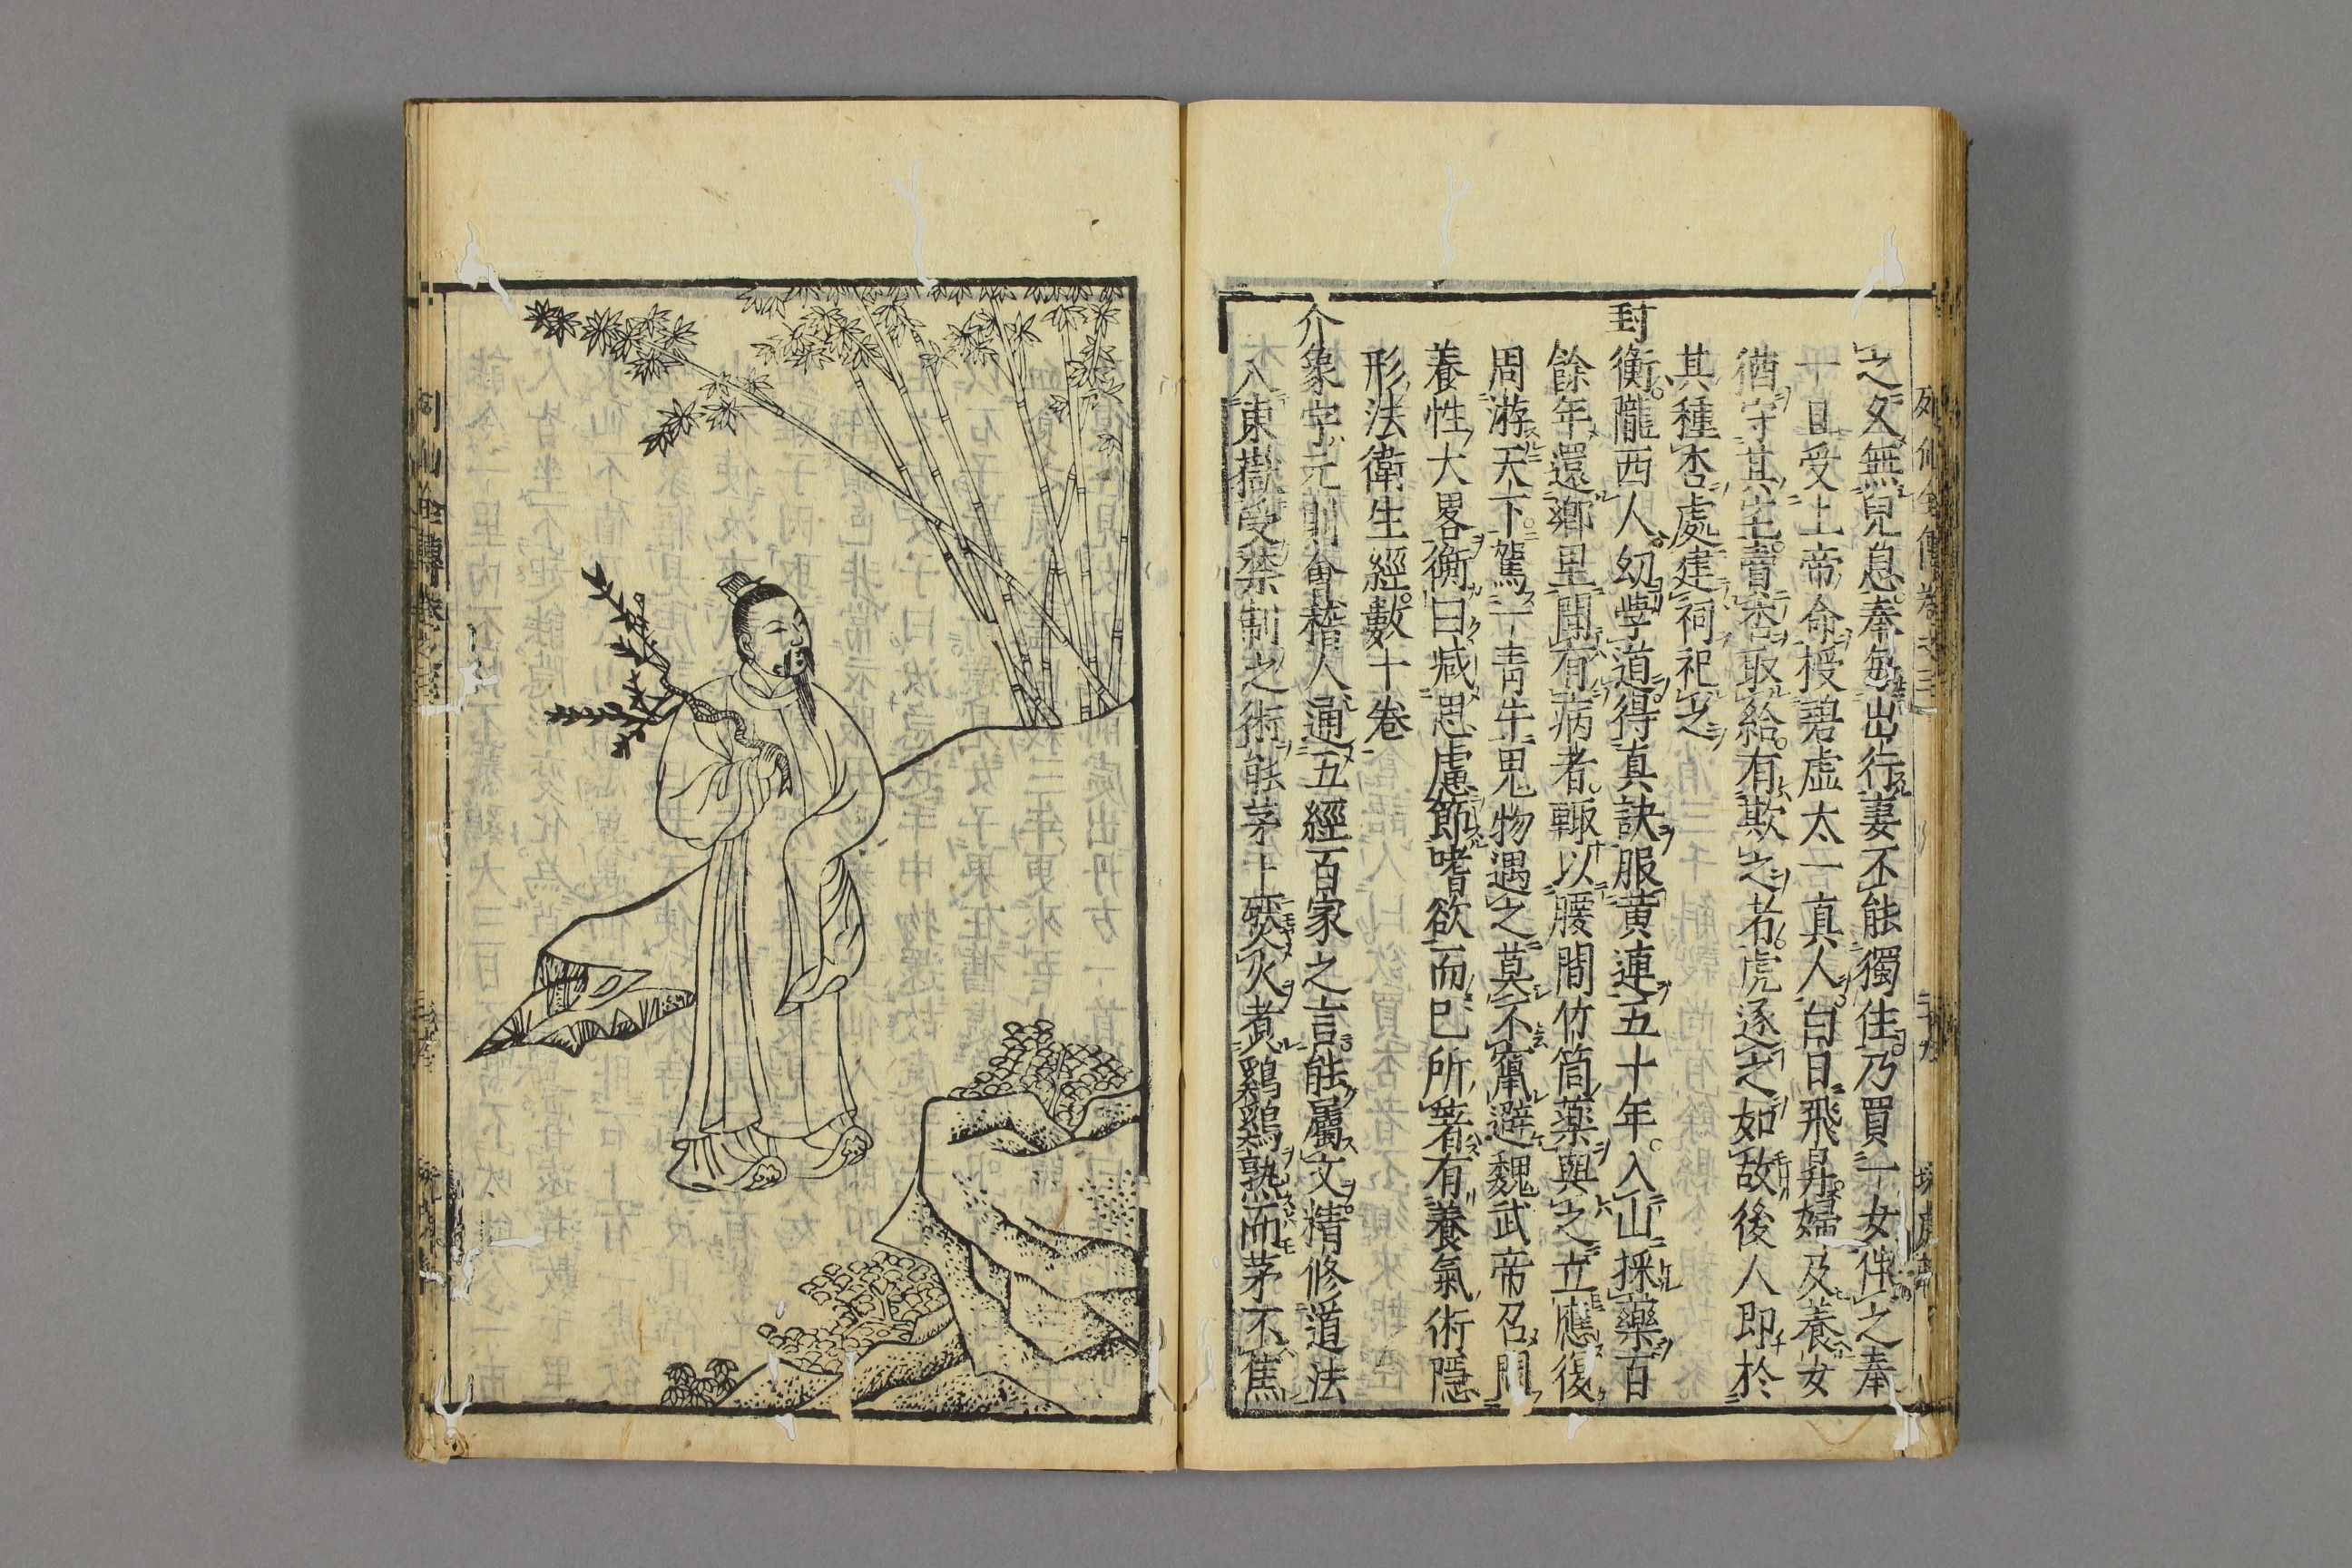 之久無兒息奉每出行妻不能獨住乃買一女伴之奉
一旦受上帝命授碧虛太一真人白日飛昇婦及養女
猶守其宅賣杏取給有欺之者虎逐之如故後人即於
其種杏處建祠祀之
封衡隴西人幼學道得真訣服黃連五十年入山採藥百
餘年還鄉里聞有病者輒以腰間竹筒藥與之立應復
周游天下駕一青牛鬼物遇之莫不竄避魏武帝召問
養性大畧衡曰減思慮節嗜欲而已所著有養氣術隱
形法衛生經數十卷
介象字元則會稽人通五經百家之言能屬文精修道法
入東嶽受禁制之術能茅上燃火煮鷄鷄熟而茅不焦
列仙全傳卷之三